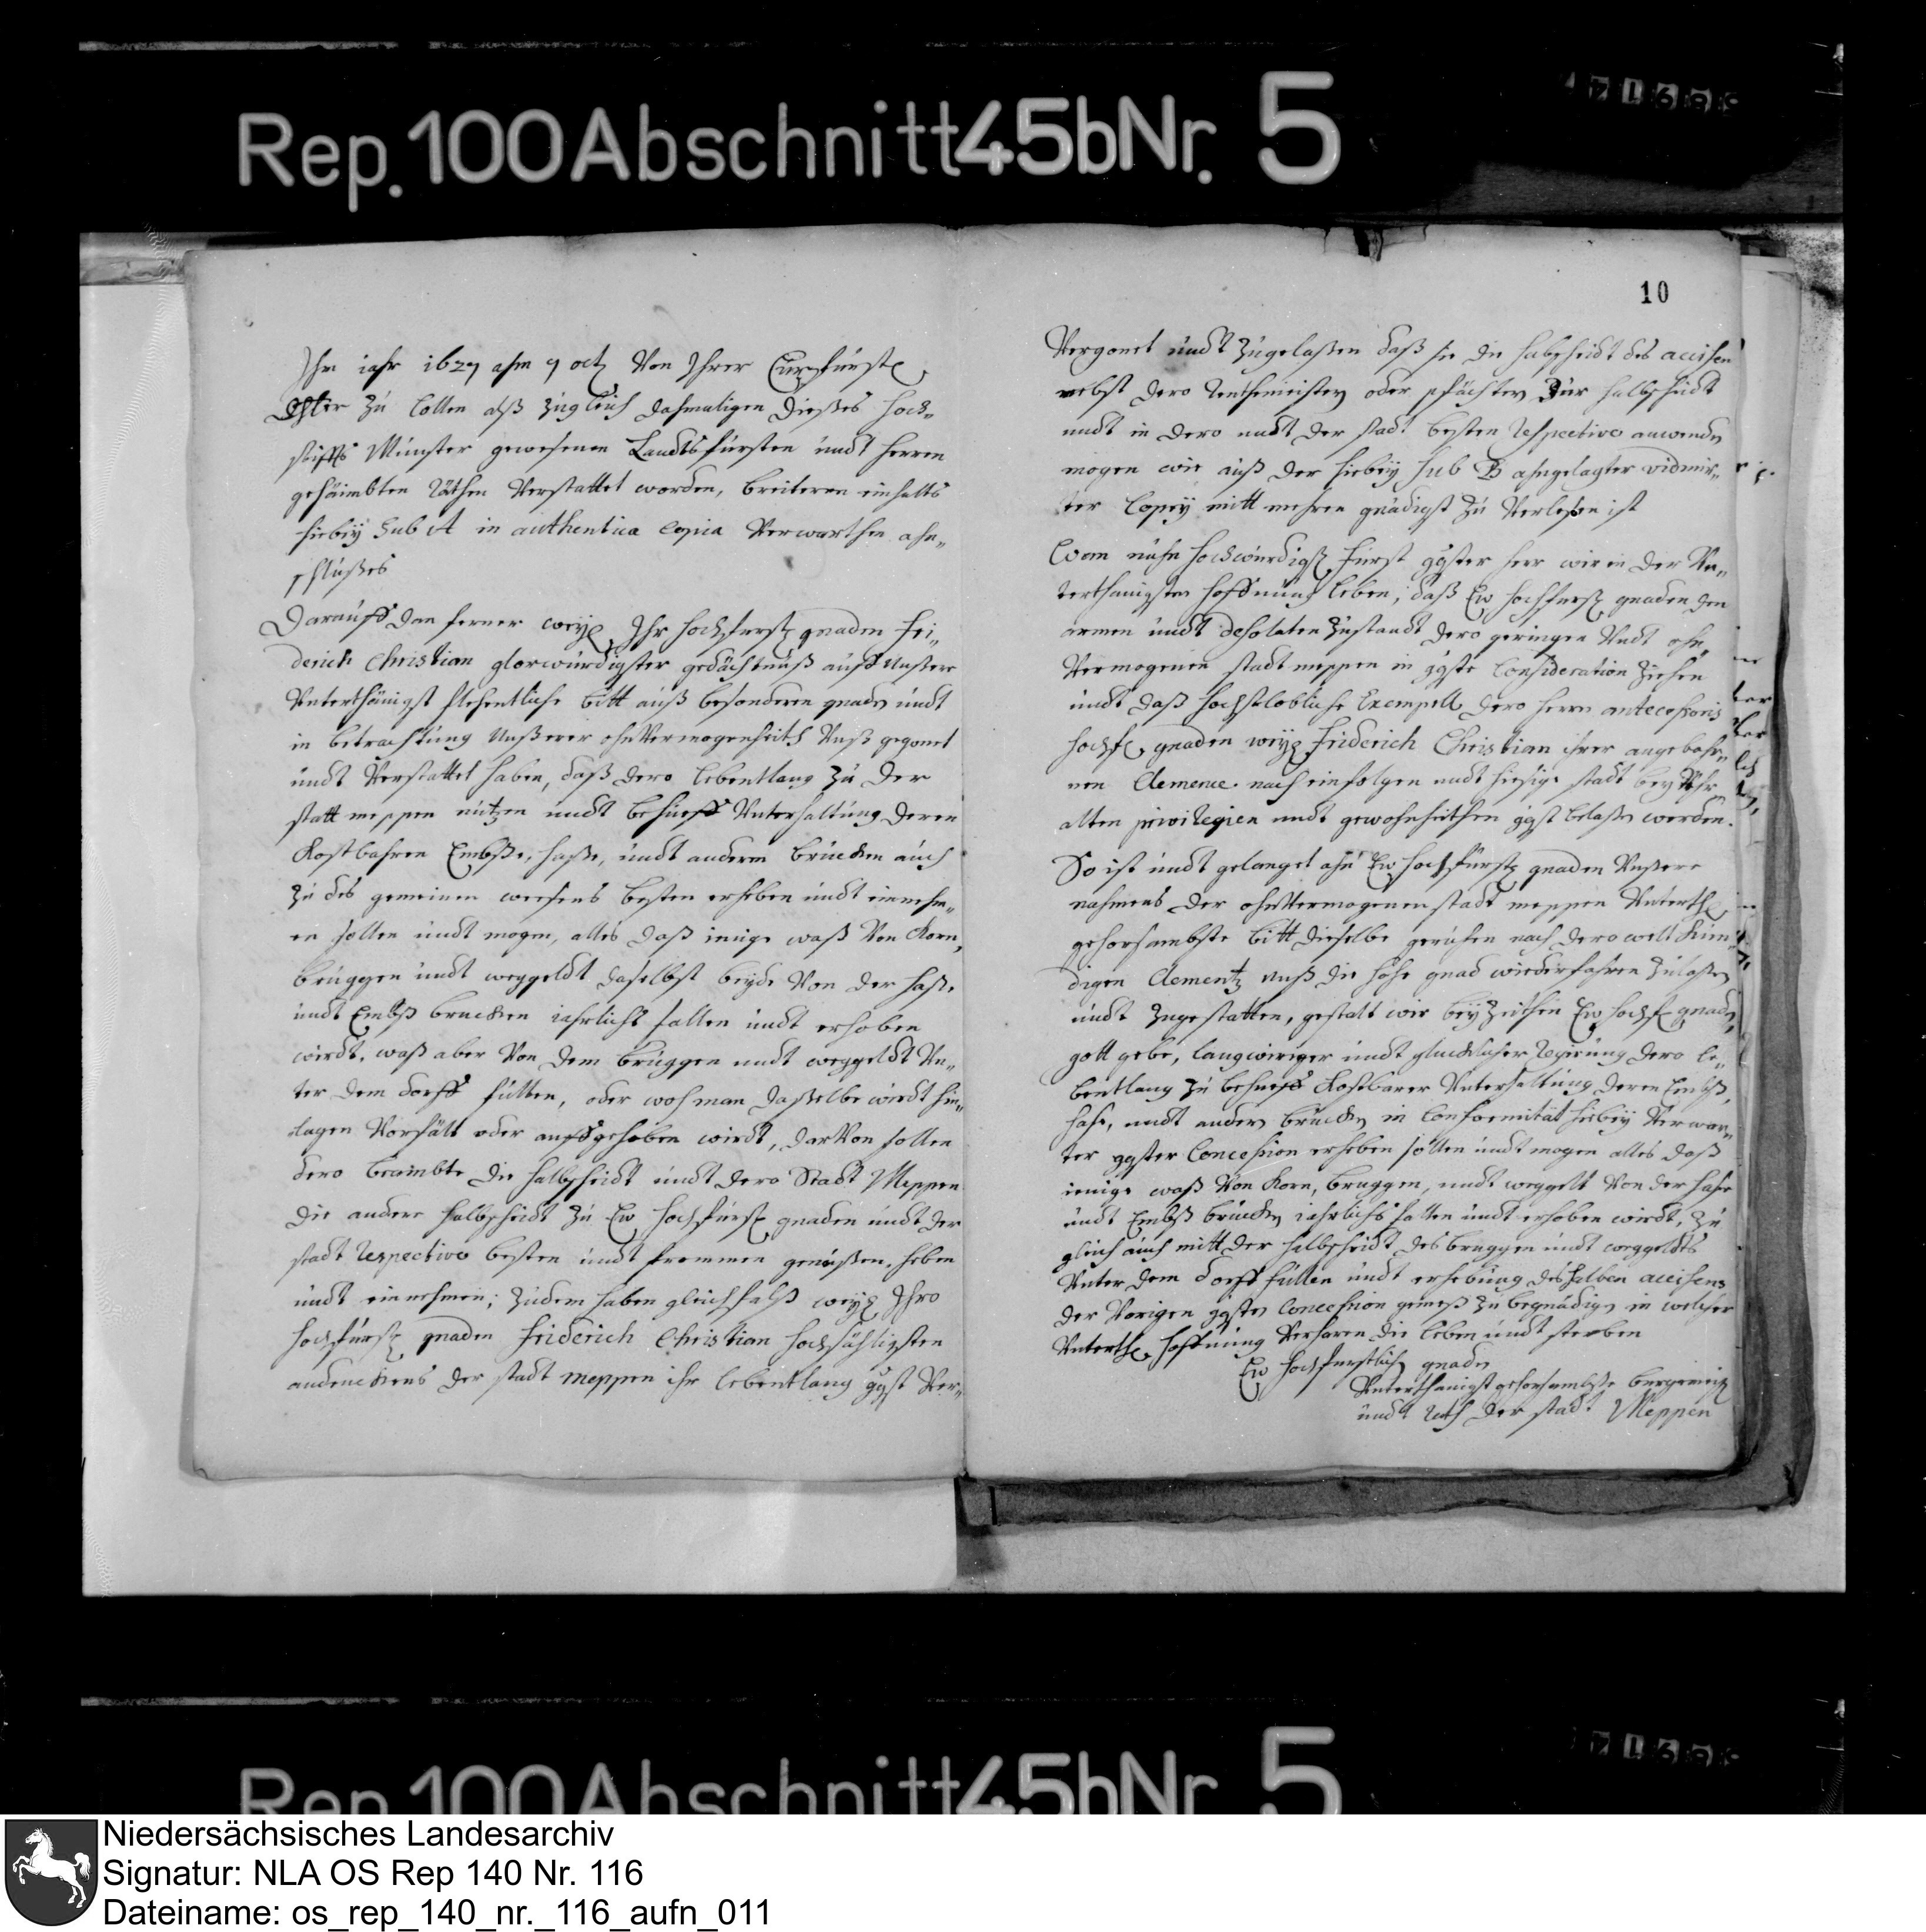 Rep. 100 Abschnitt 45b Nr. 5
10
Ihm iahr 1627 ahm 9 octb Von Ihrer Churfürstl.
zu Collen alß zugleich dahmaligen dießes hoch„
stiffts Münster gewesenen Landtsfürsten undt herren
gehäimbten Räthen Verstattet worden, breiteren einhalts
hiebey sub A in authentica copia Verwarthen ahn„
schlußes
Darauff dan ferner weyl. Ihr hochfürstl gnaden Fri„
derich Christian glorwürdigster gedächtnuß auff Unßere
Unterthänigst flehentliche bitt auß besonderen gnaden undt
in betrachtung Unßerer ohnVermogenheith Unß gegonet
undt Verstattet haben, daß dero lebentlang zu der
statt meppen nutzen undt behueff Unterhaltung deren
Kostbahren Embße, haße, undt anderen brücken auch
zu des gemeinen weesens besten erheben undt einnehm„
en sollen undt mogen, alles daß ienige waß Von Korn,
brüggen undt weggeldt daselbst beyde Von der haße
undt Embß brucken iahrlichs fallen undt erhoben
wirdt, waß aber Von dem brüggen undt weggeldt Un„
ter dem dorff füllen, oder woh man daßelbe wirdt hin„
lagen Vorfält oder auffgehoben wirdt, darVon sollen
dero beambte die halbscheidt undt dero Stadt Meppen
die andere halbscheidt zu Ew hochfürstl gnaden undt der
stadt Respective besten undt frommen genießen, heben
undt einnehmen; zudem haben gleichfalß weyl Ihro
hochfürstl gnaden Friderich Christian hochsähligsten
andenckens der stadt meppen ihr lebentlang ggst Ver„
Vergonet undt zugelaßen daß sie die halbscheidt des accisen
nebst dero Renthmeister oder pfächter zur halbscheidt
undt in dero undt der stadt besten Respective anwenden
mogen wie auß der hiebey sub B ahngelagter vidimir„
ter Copey mitt mehren gnädigst zu Verlesen ist
Wan nuhn hochwürdigst Fürst ggster herr wir in der Un„
terthänigsten hoffnung leben, daß Ew hochfürstl gnaden den
armen undt desolaten zustandt dero geringen Undt ohn„
Vermogenen stadt meppen in ggste Consideration ziehen
undt daß hochstlobliche Exempell dero herrn antecessoris
hochf. gnaden weyl Friderich Christian ihrer angebohr„
nen Clemence nach einfolgen undt hiesige stadt bey Ihr
alten privilegien undt gewohnheithen ggst belaßen werden.
So ist undt gelanget ahn Ew hochfürstl gnaden Unßere
nahmens der ohnVermogenen stadt meppen Unterth.
gehorsambste bitt dieselbe geruhen nach dero welt kun„
digen Clementz unß die hohe gnad wiederfahren zulaßen
undt zugestatten, gestalt wir bey zeithen Ew hochf gnaden,
gott gebe, langwiriger undt glucklicher Regirung dero le„
bentlang zu behueff Kostbarer Unterhaltung deren Embß,
hase, undt anderen brucken in Conformität hiebey Verwar„
ter ggster Concession erheben sollen undt mogen alles daß
ienige waß Von Korn, bruggen, undt weggelt Von der hase
undt Embß brucken iahrlichs fallen undt erhoben wirdt, zu
gleich auch mitt der halbscheidt des bruggen undt weggeldts
Unter dem dorff füllen undt erhebung des halben accisens
der Vorigen ggsten Concession gemeß zu begnädigen in welcher
Unterth. hoffnung Verharen die leben undt sterben
Ew hochfürstliche gnaden
Unterthänigst gehorsambste burgermeistr
undt Rath der stadt Meppen
Rep. 100 Abschnitt 45b Nr. 5
Niedersächsisches Landesarchiv
Signatur: NLA OS Rep 140 Nr. 116
Dateiname: os_rep_140_nr._116_aufn_011